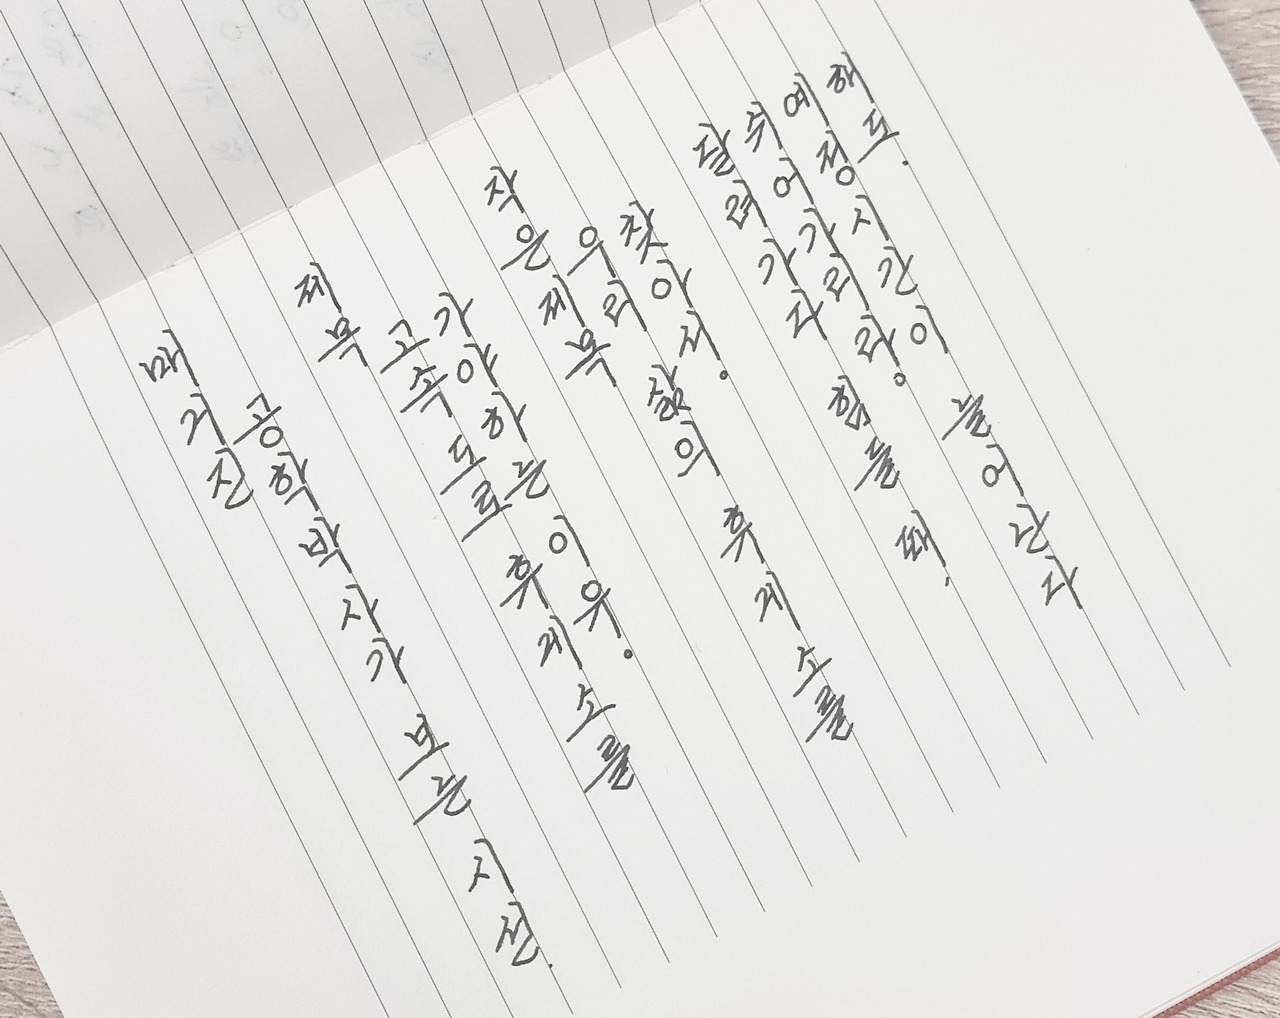 매거진
공학박사가 보는 시선.
제목
고속도로 휴게소를
가야하는 이유.
작은 제목
우리 삶의 휴게소를
찾아서.
달려가다 힘들 때,
쉬어가리라.
예정시간이 늘어난다
해도.